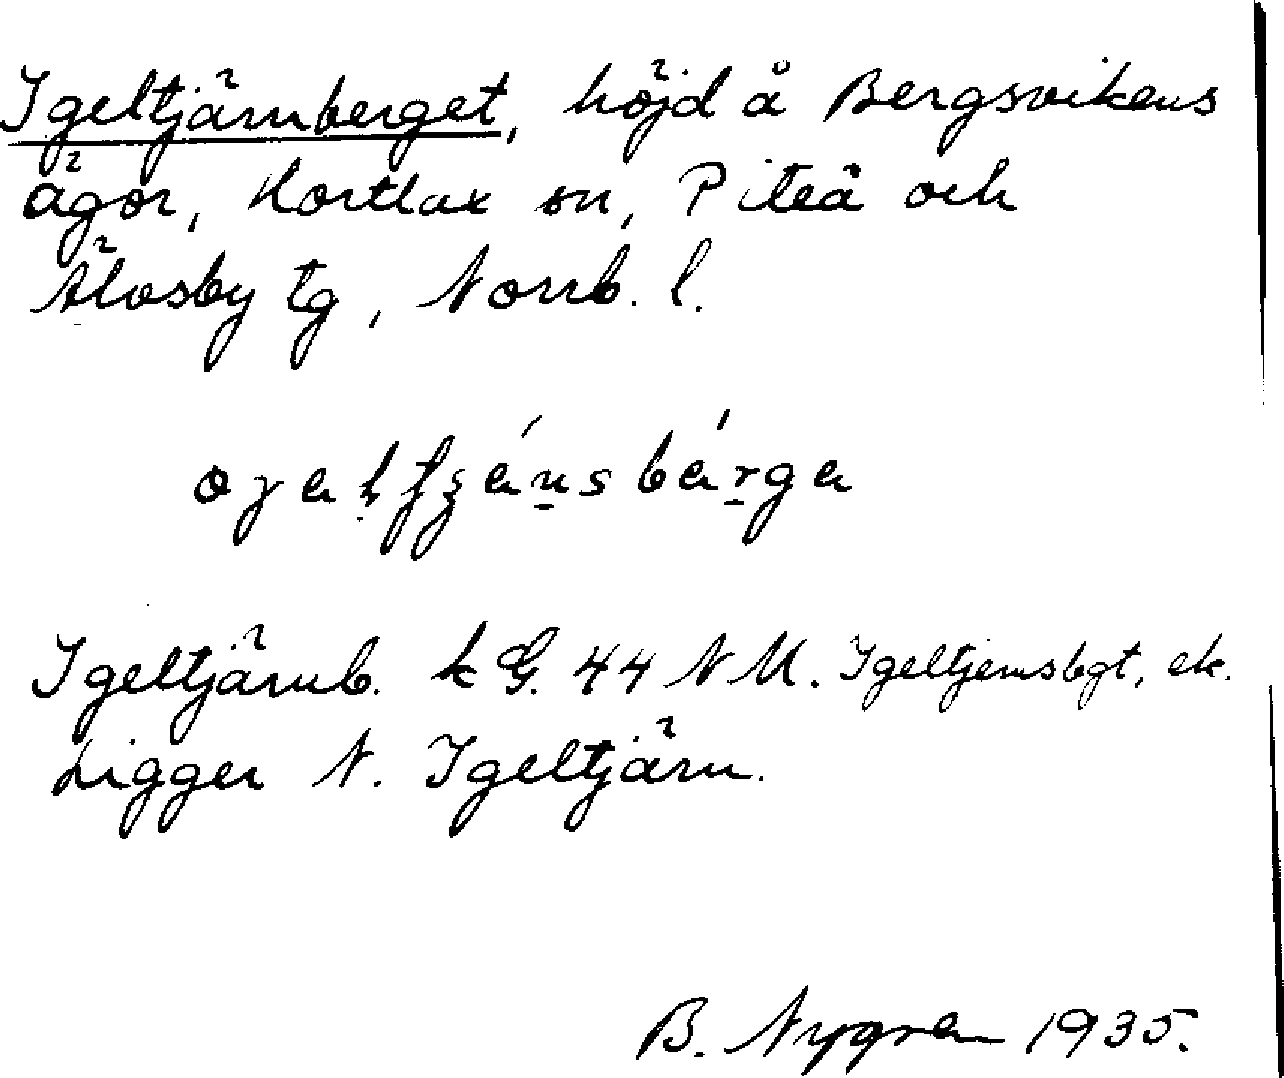 Igeltjärnberget, höjd å Bergsvikens
ägor, Hortlax sn, Piteå och
Älvsby tg, Norrb. l.
Igeltjärnb. k G. 44 N M. Igeltjernsbgt, ek.
Ligger N. Igeltjärn.
B. Nygren 1935.